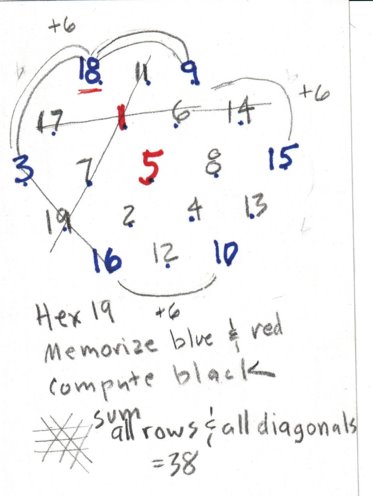 +6
18 11 9
17 1 6 14 +6
3 7 5 8 15
19 2 4 13
16 12 10
Hex 19 +6
Memorize blue & red
compute black
sum all rows & all diagonals
=38